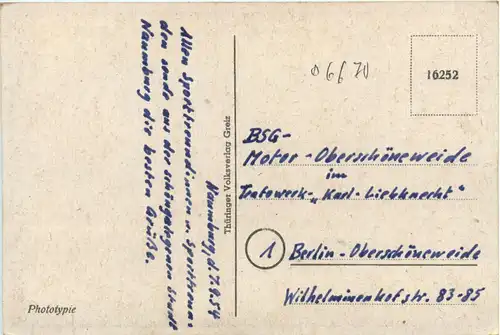 Naumburg, d. 7.9.54
Allen Sportfreundinnen u. Sportfreun-
den sende aus der schöngelegenen Stadt
Naumburg die besten Grüße.
Phototypie
Thüringer Volksverlag Greiz
16252
BSG-
Motor-Oberschöneweide
im
Trafowerk-„Karl-Liebknecht"
1
Berlin-Oberschöneweide
Wilhelminenhofstr. 83-85